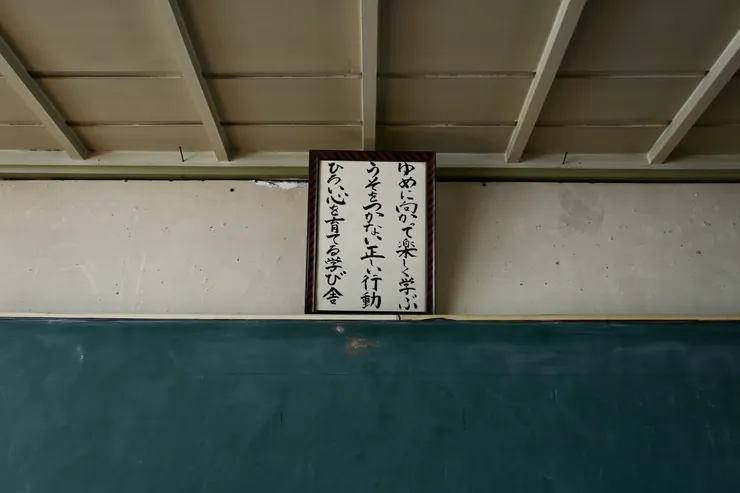 ゆめに向かって楽しく学ぶ
うそをつかない正しい行動
ひろい心を育てる学び舎